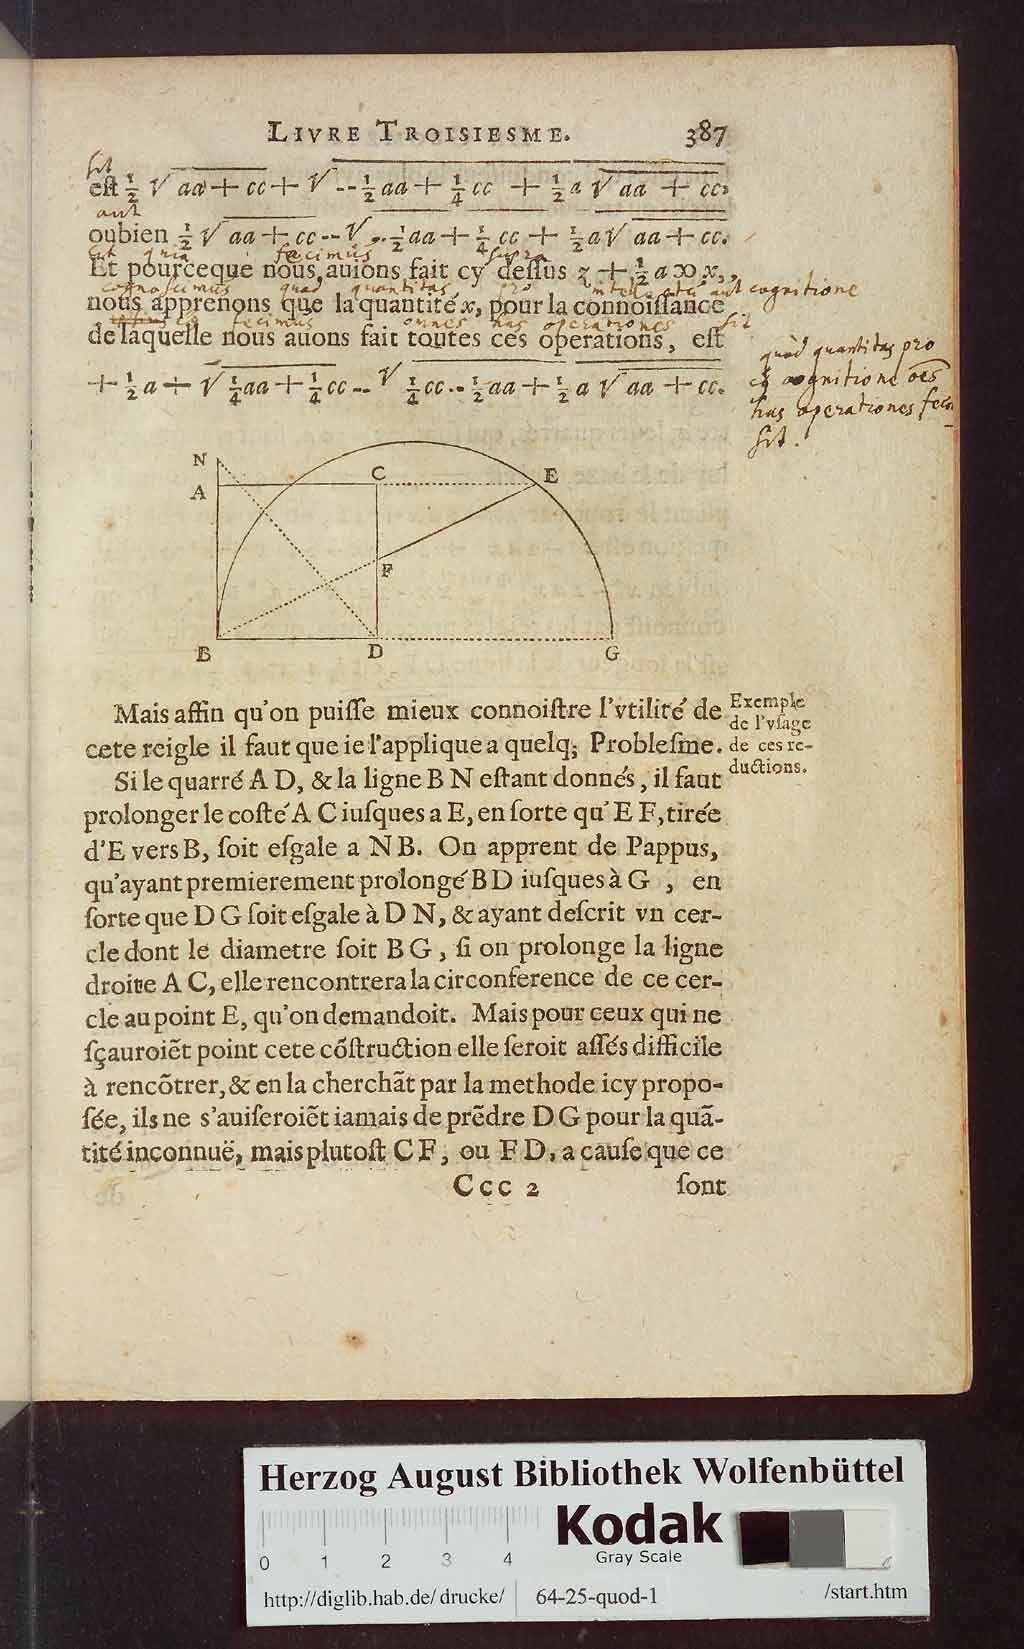 LIVRE TROISIESME. 387
sit
eſt ½ √ aa + cc + √ -- ½ aa + ¼ cc + ½ a √ aa + cc,
aut
oubien ½ √ aa + cc -- √ -- ½ aa + ¼ cc + ½ a √ aa + cc.
quia fecimus supra
Et pourceque nous auions fait cy deſſus z + ½ a ꝏ x,
cognoscimus quod quantitas pro cognitione
nous apprenons que la quantité x, pour la connoiſſance
fecimus omnes has operationes sit
de laquelle nous auons fait toutes ces operations, eſt
quòd quantitas pro
cognitione oēs
has operationes
sit.
+ ½ a + √ ¼ aa + ¼ cc -- √ ¼ cc -- ½ aa + ½ a √ aa + cc.
N
A C E
F
B D G
Mais affin qu'on puiſſe mieux connoiſtre l'vtilité de
cete reigle il faut que ie l'applique a quelq; Probleſme.
Exemple
de l'vſage
de ces re-
ductions.
Si le quarré A D, & la ligne B N eſtant donnés, il faut
prolonger le coſté A C iuſques a E, en ſorte qu' E F, tirée
d'E vers B, ſoit eſgale a N B. On apprent de Pappus,
qu'ayant premierement prolongé B D iuſques à G , en
ſorte que D G ſoit eſgale à D N, & ayant deſcrit vn cer-
cle dont le diametre ſoit B G, ſi on prolonge la ligne
droite A C, elle rencontrera la circonference de ce cer-
cle au point E, qu'on demandoit. Mais pour ceux qui ne
ſçauroiẽt point cete cõſtruction elle ſeroit aſſés difficile
à rencõtrer, & en la cherchãt par la methode icy propo-
ſée, ils ne s'auiſeroiẽt iamais de prẽdre D G pour la quã-
tité inconnuë, mais plutoſt C F, ou F D, a cauſe que ce
Ccc 2 ſont
Herzog August Bibliothek Wolfenbüttel
Kodak
Gray Scale
0 1 2 3 4
http://diglib.hab.de/ drucke/ 64-25-quod-1 /start.htm